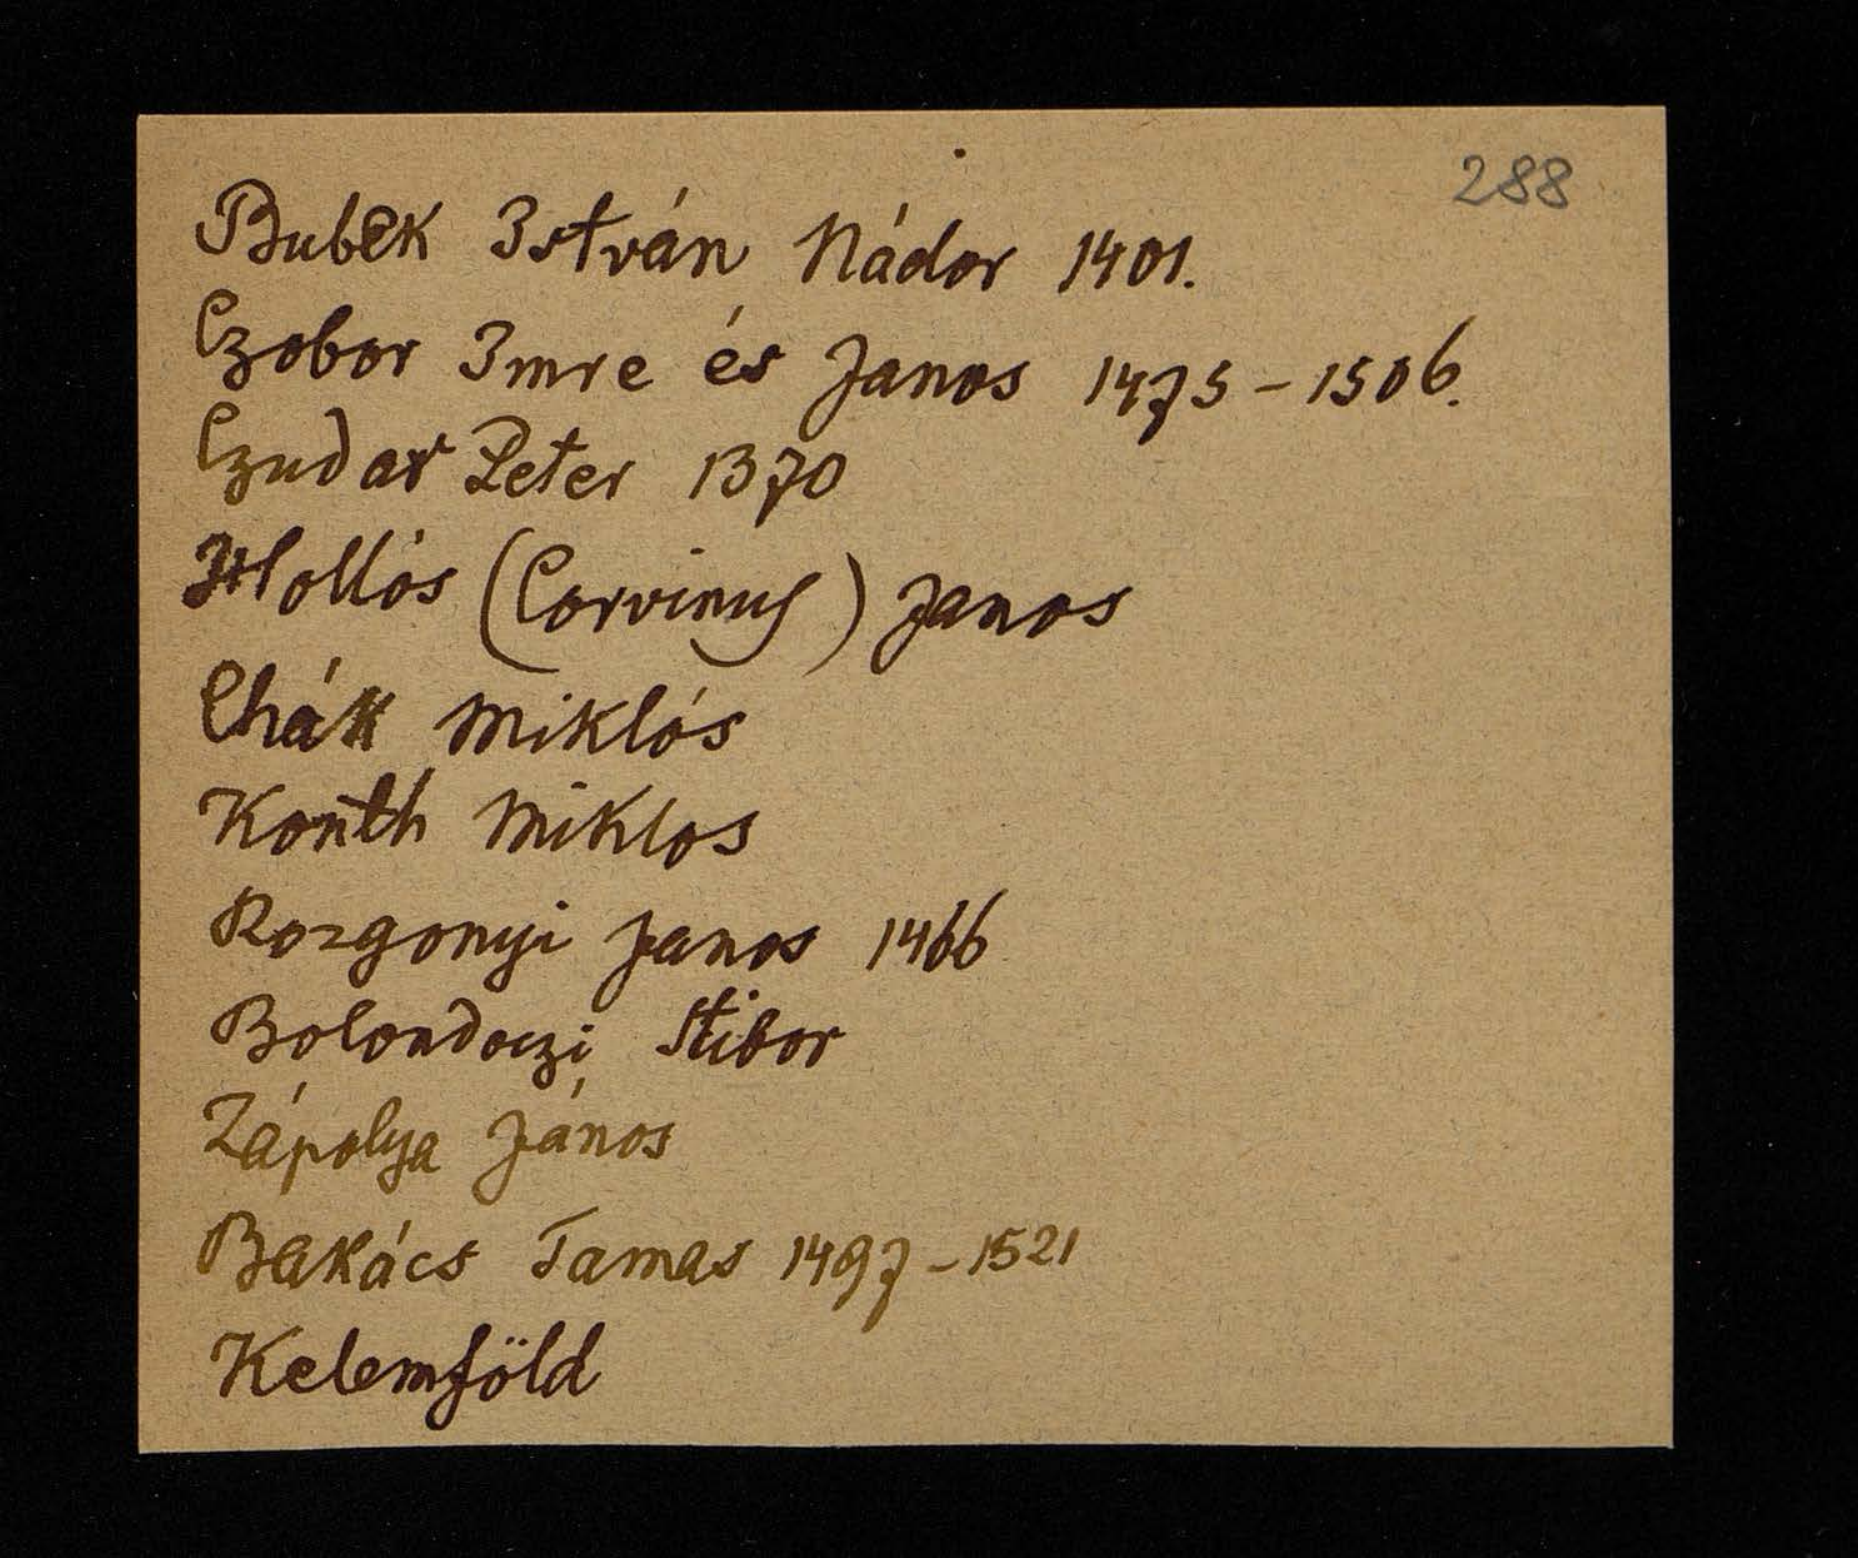 288
Bubek István Nádor 1401.
Czobor Imre és Janos 1475 - 1506.
Czudar Peter 1370
Hollós (Corvinus) Janos
Chák Miklós
Konth Miklos
Rozgonyi Janos 1466
Bolondoczi Stibor
Zápolya János
Bakács Tamas 1497 - 1521
Kelemföld